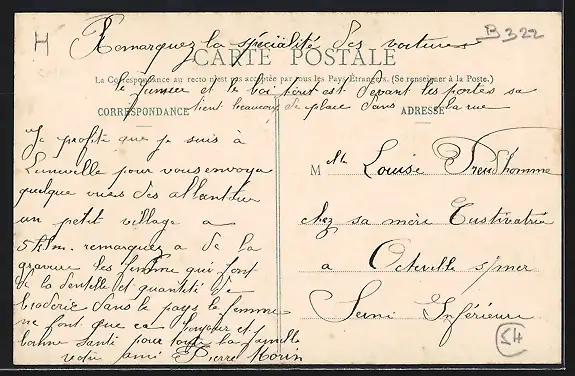 H
B322
Remarquez la spécialité des voitures
CARTE POSTALE
La Correspondance au recto n'est pas acceptée par tous les Pays Étrangers. (Se renseigner à la Poste.)
le fumier et le boi tout est devant les portes sa
tient beaucoup de place dans la rue
CORRESPONDANCE
ADRESSE
Je profite que je suis à
Luneville pour vous envoya
quelque vues des
un petit village a
5 klm. remarquez a de la
gravure les femme qui font
de la dentelle et quantité de
broderie dans le pays le femme
ne font que ca bonjour et
bonne santé pour toute la famille
votre ami Pierre Morin
M lle Louise Preudhomme
chez sa mère Custivatrice
a Octeville s/mer
Seine Inférieure
54